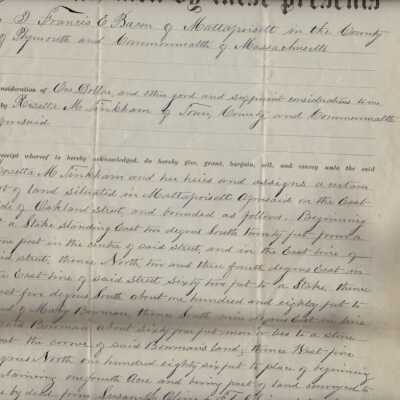 by these presents
I Francis E. Bacon of Mattapoisett in the County
of Plymouth and Commonwealth of Massachusetts
consideration of One Dollar, and other good and sufficient considerations to me
by Rozetta M. Tinkham of Town, County and Commonwealth
aforesaid
receipt whereof is hereby acknowledged, do hereby give, grant, bargain, sell, and convey unto the said
Rozetta M Tinkham and her heirs and assigns a certain
lot of land situated in Mattapoisett aforesaid on the East
side of Oakland street, and bounded as follows. Beginning
at a Stake standing East two degrees South twenty feet from a
stone post in the centre of said street, and in the East line of
said street, thence North two and three fourth degrees East in
the East line of said street sixty two feet to a Stake. thence
East five degrees South about one hundred and eighty feet to
land of Mary Bowman thence South nine degrees East in line
said Bowman about sixty four feet more or less to a stone
at the corner of said Bowman's land; thence West five
degrees North one hundred eighty six feet to place of beginning
containing one fourth Acre and being part of land conveyed to
me by deed from Susannah